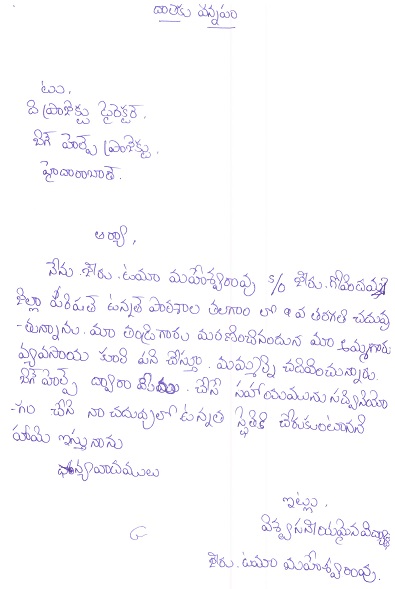 దాతకు విన్నపం
టు,
ది ప్రాజెక్టు డైరెక్టర్,
బిగ్ హెల్ప్ ప్రాజెక్టు,
హైదారాబాత్.
ఆర్యా,
నేను. జీరు. ఉమా మహేశ్వరరావు s/o జీరు. గోవిందమ్మ
జిల్లా పరిషత్ ఉన్నత పాఠశాల తలగాం లో 9 వ తరగతి చదువు
-తున్నాను. మా తండ్రిగారు మరణించినందున మా అమ్మగారు
వ్యవసాయ కూలి పని చేస్తూ. మమ్మల్ని చదివించుచున్నారు.
బిగ్ హెల్ప్ ద్వారా మీరు. చేసే సహాయమును సద్వినియో
-గం చేసి నా చదువులో ఉన్నత స్థితికి చేరుకుంటానని
హామీ ఇస్తున్నాను
ధన్యవాదములు
ఇట్లు,
విశ్వసనీయమైన విద్యార్థి
జీరు. ఉమా మహేశ్వరరావు.